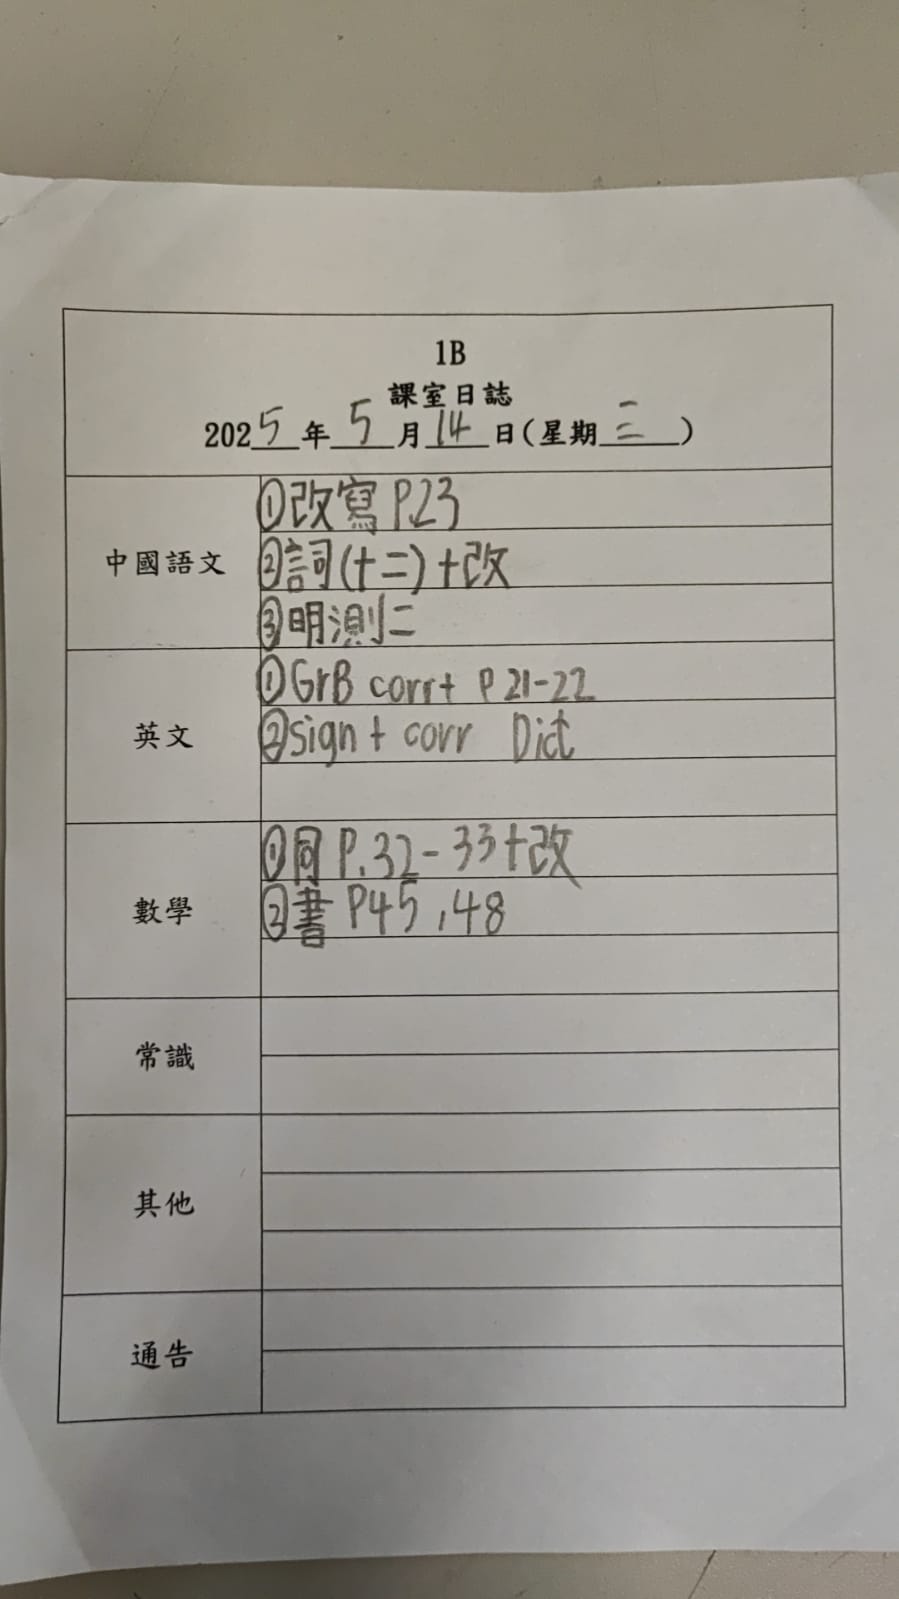 1B
課室日誌
2025年5月14日(星期三)
中國語文
①改寫 P.23
②詞(十二)+改
③明測二
英文
①GrB corr+ P 21-22
②sign + corr Dict
數學
①同 P.32-33+改
②書 P45,48
常識
其他
通告